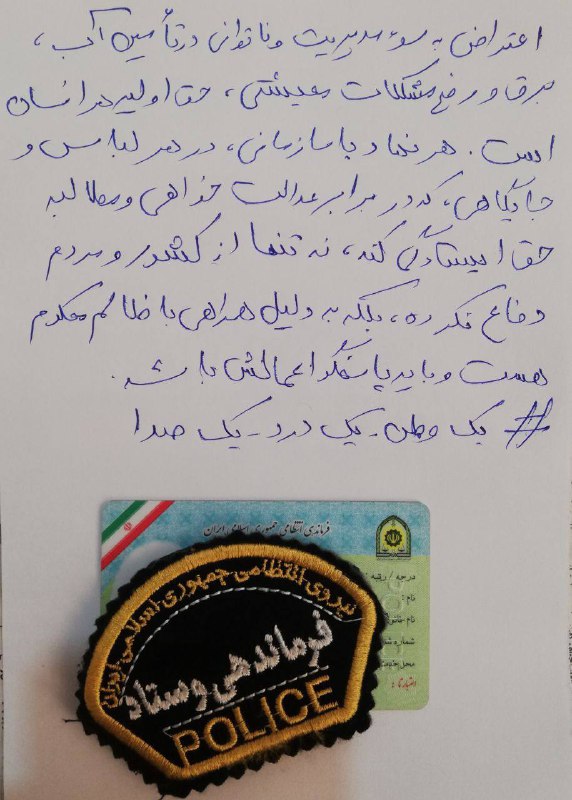 اعتراض به سوء مدیریت و ناتوانی در تأمین آب،
برق و رفع مشکلات معیشتی، حق اولیه هر انسان
است. هر نهاد یا سازمانی، در هر لباس و
جایگاهی، که در برابر عدالت خواهی و مطالبه
حق ایستادگی کند، نه تنها از کشور و مردم
دفاع نکرده، بلکه به دلیل همراهی با ظالم محکوم
هست و باید پاسخگو اعمالش باشد.
# یک وطن-یک درد-یک صدا
فرماندهی انتظامی جمهوری اسلامی ایران
درجه / رتبه :
نام :
نام خانوادگی
شماره
محل خدمت
اعتبار تا :
نیروی انتظامی جمهوری اسلامی ایران
فرماندهی و ستاد
POLICE